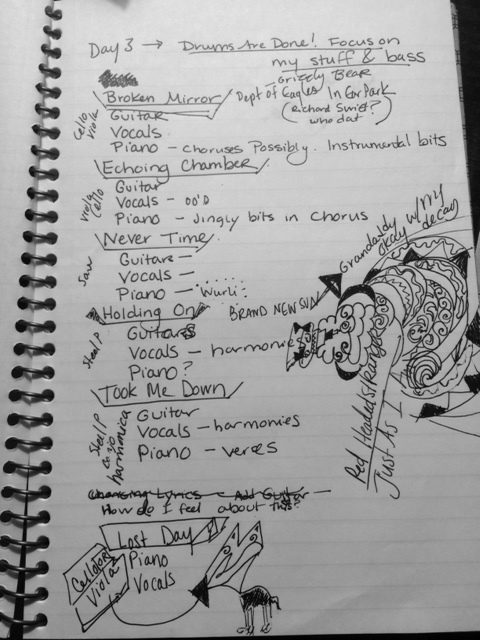 Day 3 → Drums Are Done! Focus on
my stuff & bass
Grizzly Bear
Dept of Eagles In Ear Park
(Richard Swift?
who dat)
Broken Mirror
Cello
Viola
Guitar
Vocals
Piano - choruses possibly. Instrumental bits
Echoing Chamber
violin
cello
Guitar
Vocals - oo'd
Piano - Jingly bits in Chorus
Never Time
Saw
Guitars -
Vocals -
Piano - Wurli
Grandaddy
okay w/my
decay
Holding On
BRAND NEW SUN
Steel P
Guitars
Vocals - harmonies
Piano?
Red Headed Stranger
Just As I
Took Me Down
Steel P
harmonica
Guitar
Vocals - harmonies
Piano - verses
Changing Lyrics - Add Guitar -
How do I feel about this?
Lost Day
Cello
Viola
Piano
Vocals